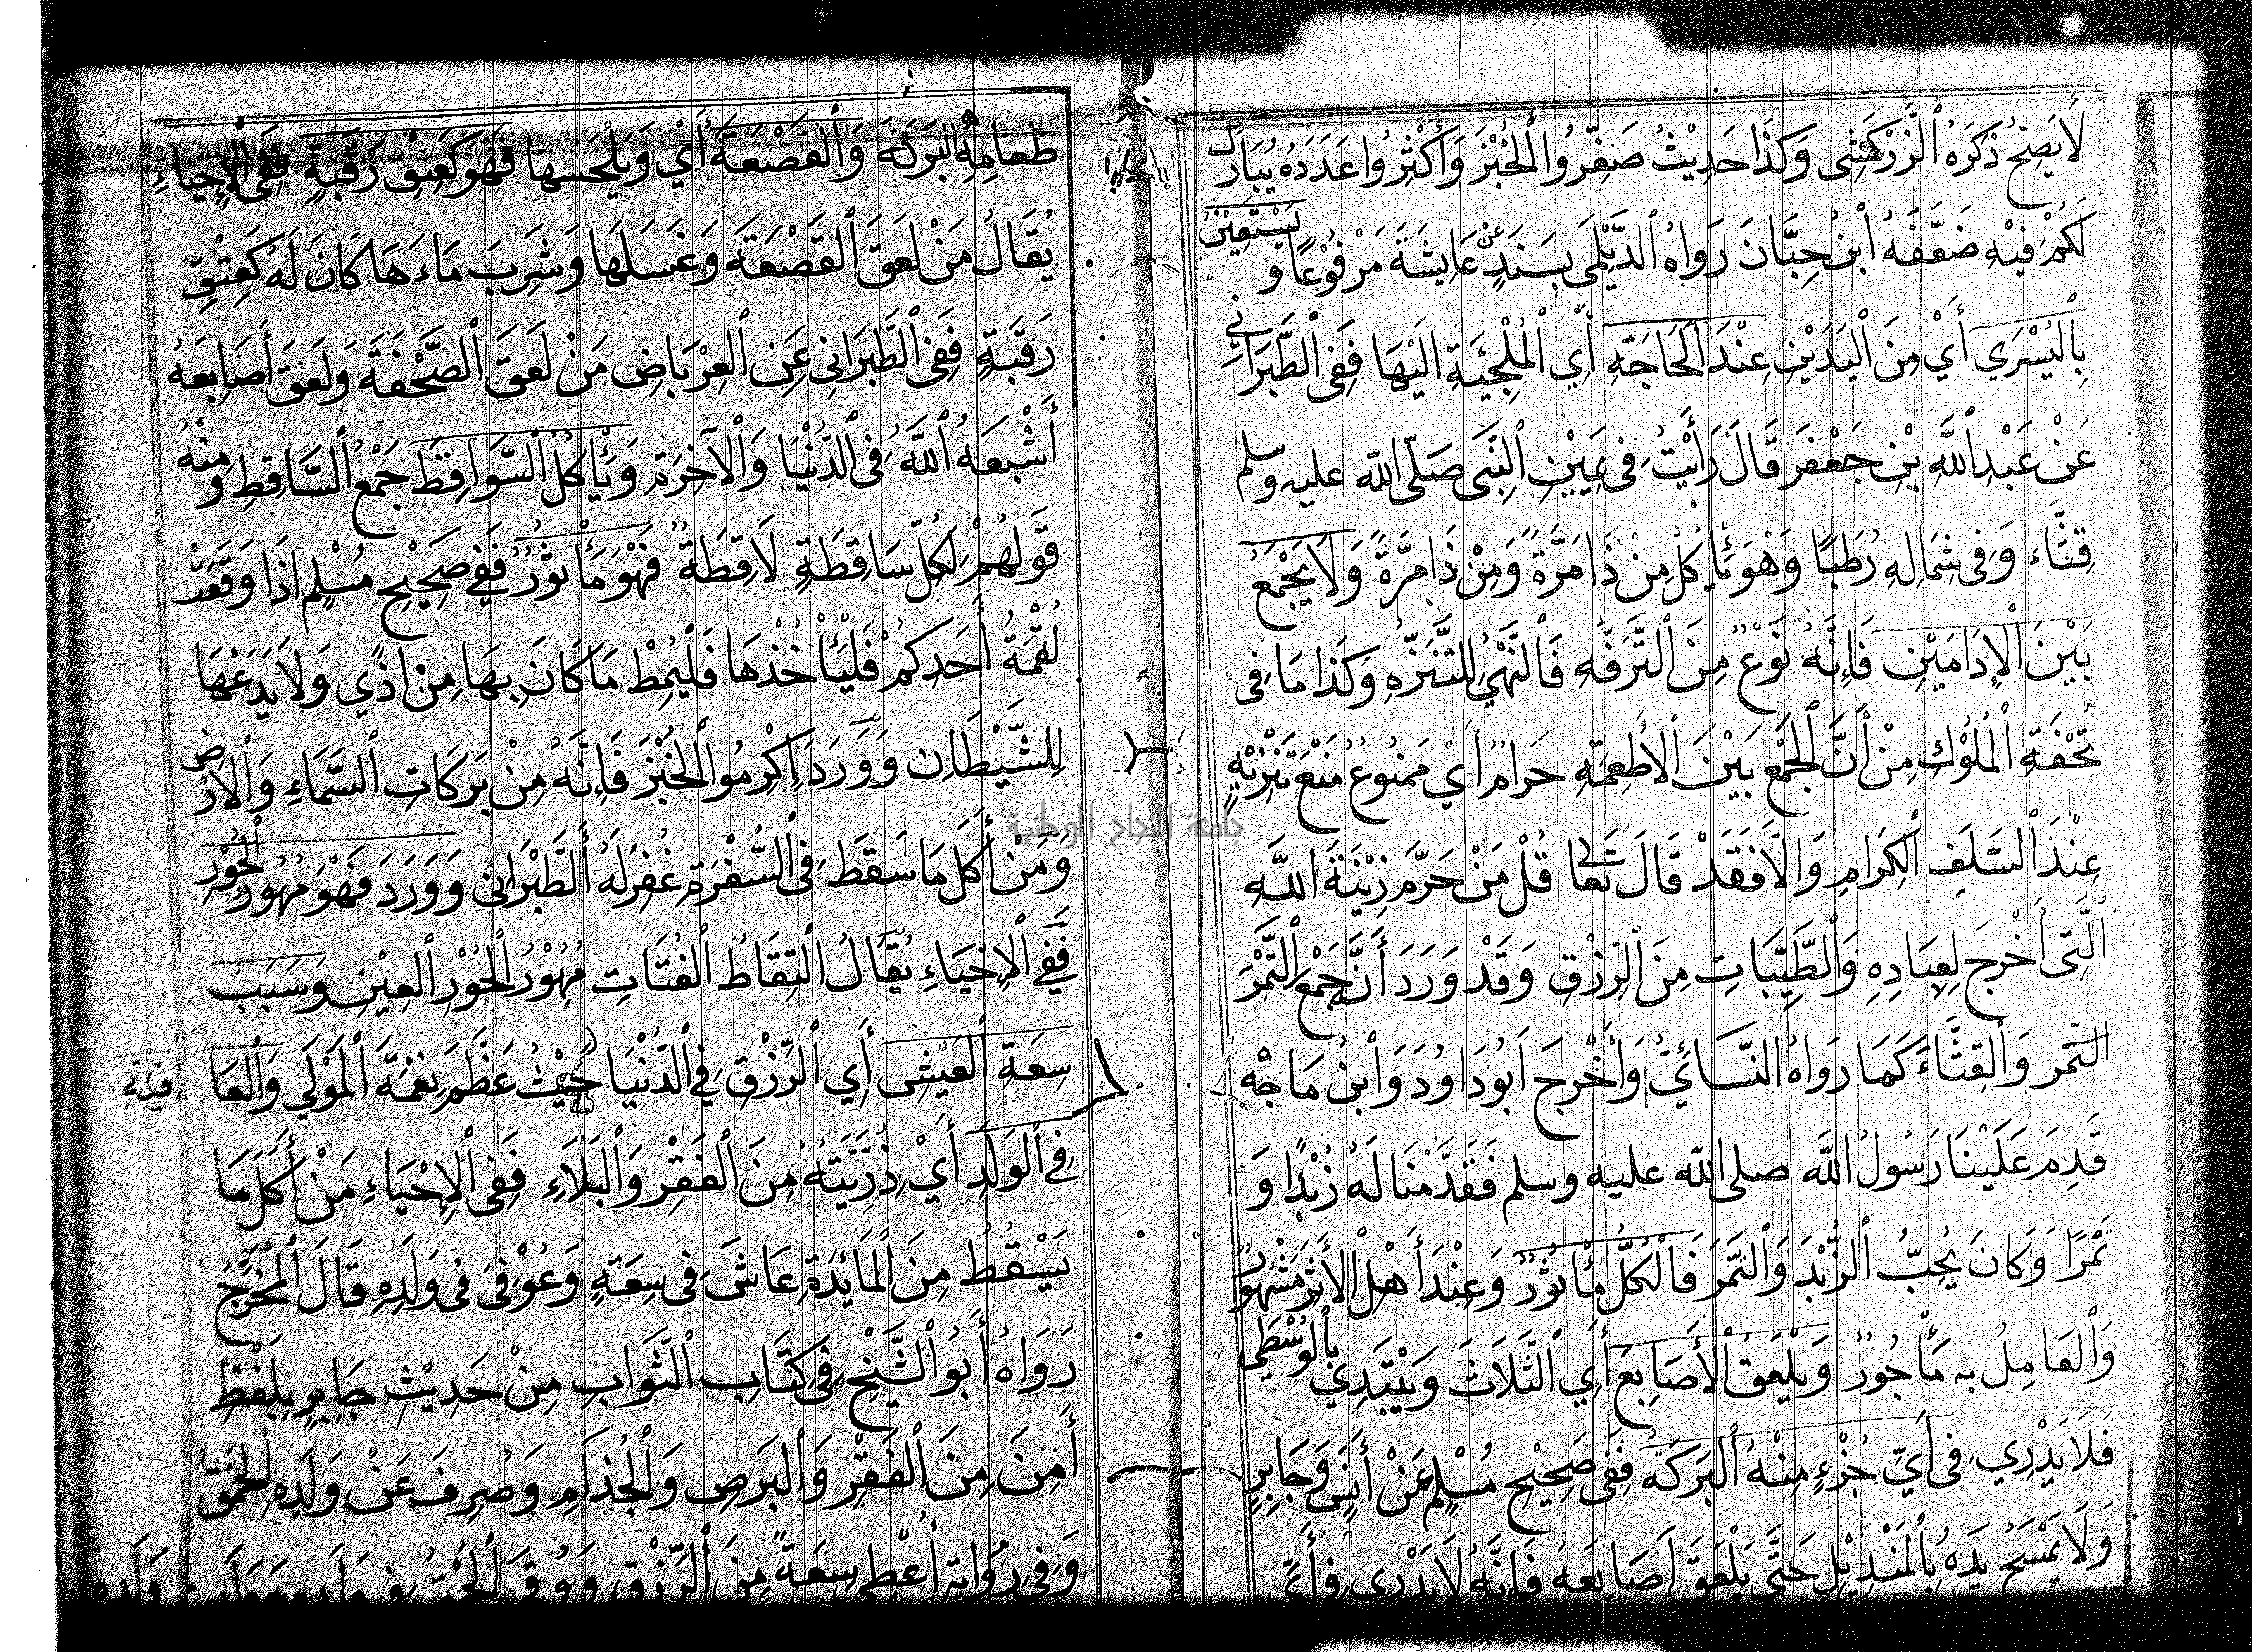 لَا يَصِحُّ ذَكَرَهُ ٱلزَّرْكَشِى وَكَذَا حَدِيْثُ صَغِّرُوا ٱلْخُبْزَ وَأَكْثِرُوا عَدَدَهُ يُبَارَكْ
لَكُمْ فِيْهِ ضَعَّفَهُ ٱبْنُ حِبَّانَ رَوَاهُ ٱلدَّيْلَمِى بِسَنَدٍ عَنْ عَايِشَةَ مَرْفُوْعًا وَ يَسْتَعِيْنُ
بِٱلْيُسْرَي أَيْ مِنَ ٱلْيَدَيْنِ عِنْدَ ٱلْحَاجَةِ أَيِ ٱلْمُلْجِئَةِ اِلَيْهَا فَفِى ٱلطَّبَرَانِي
عَنْ عَبْدِ ٱللَّهِ بْنِ جَعْفَرَ قَالَ رَأَيْتُ فِى يَمِيْنِ ٱلنَّبِى صَلَّى ٱللّٰه عليه وسلم
قِثَّاء وَفِى شِمَالِهِ رُطَبًا وَهْوَ يَأْكُلُ مِنْ ذَا مَرَّةً وَمِنْ ذَا مَرَّةً وَلَا يَجْمَعُ
بَيْنَ ٱلْإِدَامَيْنِ فَإِنَّهُ نَوْعٌ مِنَ ٱلتَّرَفُّهِ فَٱلنَّهْيُ لِلتَّنَزُّهِ وَكَذَا مَا فِى
تُحْفَةِ ٱلْمُلُوْكِ مِنْ أَنَّ ٱلْجَمْعَ بَيْنَ ٱلْأَطْعِمَةِ حَرَامٌ أَيْ مَمْنُوعٌ مَنْعَ تَنْزِيْهٍ
عِنْدَ ٱلسَّلَفِ ٱلْكِرَامِ وَاِلَّا فَقَدْ قَالَ تَعَالٰى قُلْ مَنْ حَرَّمَ زِيْنَةَ اللّٰهِ
ٱلَّتِى أَخْرَجَ لِعِبَادِهِ وَٱلطَّيِّبَاتِ مِنَ ٱلرِّزْقِ وَقَدْ وَرَدَ أَنَّ جَمْعَ ٱلتَّمْرَ
التمر وَٱلْقِثَّاءَ كَمَا رَوَاهُ ٱلنَّسَائِيُّ وَأَخْرَجَ اَبُو دَاوُدَ وَٱبْنُ مَاجَهْ
قَدِمَ عَلَيْنَا رَسُولُ ٱللَّه صلى الله عليه وسلم فَقَدَّمْنَا لَهُ زُبْدًا وَ
تَمْرًا وَكَانَ يُحِبُّ ٱلزُّبْدَ وَٱلتَّمْرَ فَٱلْكُلُّ مَأْثُوْرٌ وَعِنْدَ أَهْلِ ٱلْأَثَرِ مَشْهُوْرٌ
وَٱلْعَامِلُ بِهِ مَأْجُورٌ وَيَلْعَقُ ٱلْأَصَابِعَ أَيِ ٱلثَّلَاثَ وَيَبْتَدِي بِٱلْوُسْطَي
فَلَا يَدْرِي فِى أَيِّ جُزْءٍ مِنْهُ ٱلْبَرَكَةُ فَفِى صَحِيْحِ مُسْلِمٍ عَنْ أَنَسٍ وَجَابِرٍ
وَلَا يَمْسَحْ يَدَهُ بِٱلْمَنْدِيْلِ حَتَّى يَلْعَقَ اَصَابِعَهُ فَإِنَّهُ لَا يَدْرِى فِى أَيِّ
طَعَامِهِ ٱلْبَرَكَةُ وَٱلْقَصْعَةَ أَيْ وَيَلْحَسُهَا فَهْوَ كَعِتْقِ رَقَبَةٍ فَفِى ٱلْإِحْيَاءِ
يُقَالُ مَنْ لَعِقَ ٱلْقَصْعَةَ وَغَسَلَهَا وَشَرِبَ مَاءَهَا كَانَ لَهُ كَعِتْقِ
رَقَبَةٍ فَفِى ٱلطَّبَرَانِى عَنِ ٱلْعِرْبَاضِ مَنْ لَعِقَ ٱلصَّحْفَةَ وَلَعِقَ أَصَابِعَهُ
أَشْبَعَهُ ٱللَّهُ فِى ٱلدُّنْيَا وَٱلْآخِرَةِ وَيَأْكُلُ ٱلسَّوَاقِطَ جَمْعُ ٱلسَّاقِطِ وَمِنْهُ
قَوْلُهُمْ لِكُلِّ سَاقِطَةٍ لَاقِطَةٌ فَهْوَ مَأْثُوْرٌ فَفِى صَحِيْحِ مُسْلِم اِذَا وَقَعَتْ
لُقْمَةُ أَحَدِكُمْ فَلْيَأْخُذْهَا فَلْيُمِطْ مَا كَانَ بِهَا مِنْ اَذًي وَلَا يَدَعْهَا
لِلشَّيْطَانِ وَوَرَدَ إِكْرِمُوا ٱلْخُبْزَ فَاِنَّهُ مِنْ بَرَكَاتِ ٱلسَّمَاءِ وَٱلْأَرْضِ
وَمَنْ أَكَلَ مَا سَقَطَ فِى ٱلسُّفْرَةِ غُفِرَ لَهُ ٱلطَّبَرَانِى وَوَرَدَ فَهْوَ مُهُوْرُ ٱلْحُوْرِ
فَفِي ٱلْإِحْيَاءِ يُقَالُ ٱلْتِقَاطُ ٱلْفُتَاتِ مُهُوْرُ ٱلْحُوْرِ ٱلْعِيْنِ وَسَبَبُ
سِعَةِ ٱلْعَيْشِ أَيِ ٱلرِّزْقِ فِي ٱلدُّنْيَا حَيْثُ عَظَّمَ نِعْمَةَ ٱلْمَوْلَي وَٱلْعَافِيَةِ
فِي ٱلْوَلَدِ أَيْ ذُرِّيَّتِهِ مِنَ ٱلْفَقْرِ وَٱلْبَلَاءِ فَفِى ٱلْإِحْيَاءِ مَنْ أَكَلَ مَا
يَسْقُطُ مِنَ ٱلْمَائِدَةِ عَاشَ فِى سِعَةٍ وَعُوْفِىَ فِى وَلَدِهِ قَالَ ٱلْمُخَرِّجُ
رَوَاهُ أَبُو ٱلشَّيْخِ فِى كِتَابِ ٱلثَّوَابِ مِنْ حَدِيْثِ جَابِرٍ بِلَفْظِ
أَمِنَ مِنَ ٱلْفَقْرِ وَٱلْبَرَصِ وَٱلْجُذَامِ وَصُرِفَ عَنْ وَلَدِهِ ٱلْحُمْقُ
وَفِى رِوَايَةٍ أُعْطِىَ سِعَةً مِنَ ٱلرِّزْقِ وَوُقِىَ ٱلْحُمْقَ فِى وَلَدِهِ وَوَلَدِ وَلَدِهِ
جامعة النجاح الوطنية